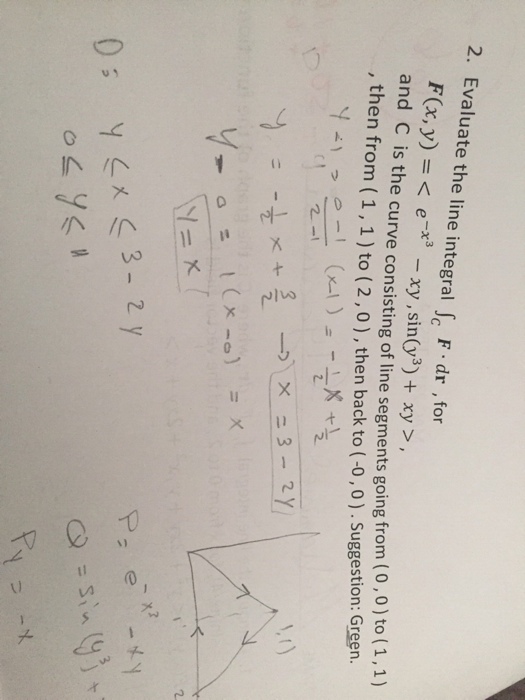 2. Evaluate the line integral ∫_C F · dr , for
F(x, y) = < e^{-x^3} − xy , sin(y^3) + xy >,
and C is the curve consisting of line segments going from ( 0 , 0 ) to ( 1 , 1 )
, then from ( 1 , 1 ) to ( 2 , 0 ) , then back to ( -0 , 0 ) . Suggestion: Green.
y - 1 = \frac{0-1}{2-1} (x-1) = -\frac{1}{2}x + \frac{1}{2}
y = -\frac{1}{2}x + \frac{3}{2} → x = 3 - 2y
y - 0 = 1(x-0) = x
y = x
D: y ≤ x ≤ 3 - 2y
0 ≤ y ≤ 1
1,1)
1
2
P = e^{-x^3} - xy
Q = sin(y^3) +
Py = -x